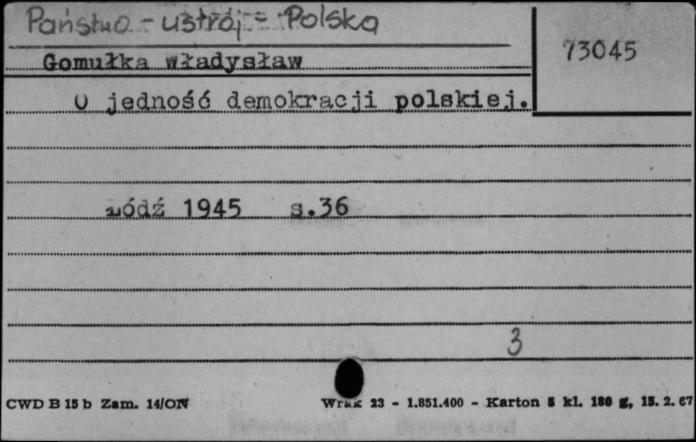 Państwo - ustrój - Polska
73045
Gomułka władysław
O jedność demokracji polskiej.
Łódź 1945 s.36
3
CWD B 15 b Zam. 14/ON 23 - 1.851.400 - Karton 5 kl. 180 g, 15. 2. 67